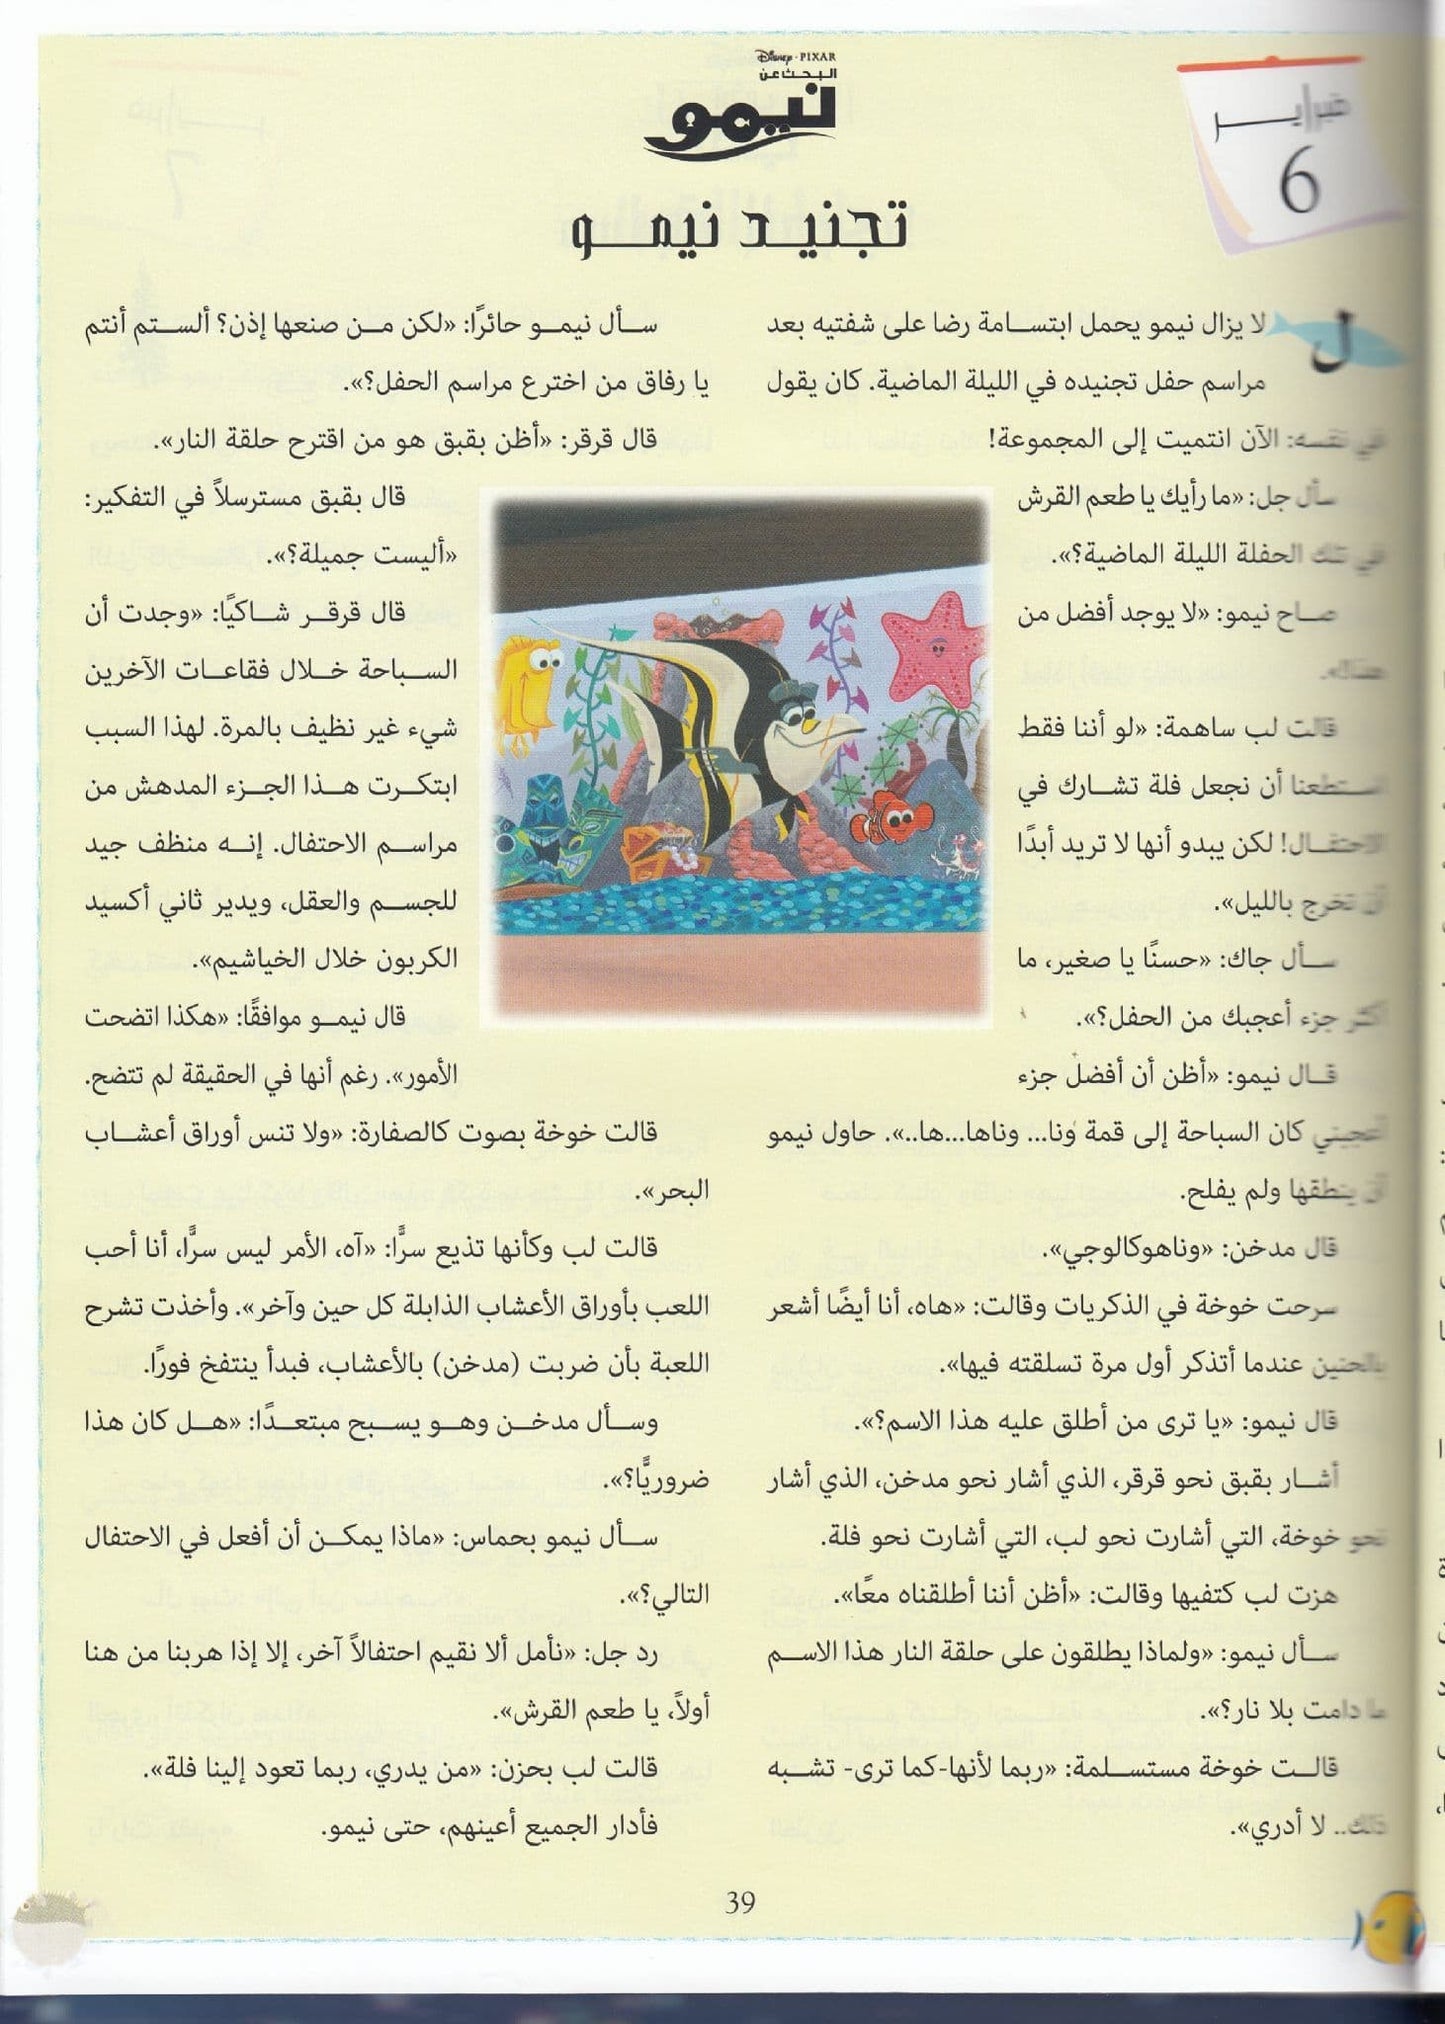 Disney · PIXAR
البحث عن
نيمو
فبراير
6
تجنيد نيمو
لا يزال نيمو يحمل ابتسامة رضا على شفتيه بعد
مراسم حفل تجنيده في الليلة الماضية. كان يقول
في نفسه: الآن انتميت إلى المجموعة!
سأل جل: «ما رأيك يا طعم القرش
في تلك الحفلة الليلة الماضية؟».
صاح نيمو: «لا يوجد أفضل من
قالت لب ساهمة: «لو أننا فقط
استطعنا أن نجعل فلة تشارك في
الاحتفال! لكن يبدو أنها لا تريد أبدًا
أن تخرج بالليل».
سأل جاك: «حسنًا يا صغير، ما
أكثر جزء أعجبك من الحفل؟».
قال نيمو: «أظن أن أفضل جزء
أعجبني كان السباحة إلى قمة ونا... وناها...ها..». حاول نيمو
أن ينطقها ولم يفلح.
قال مدخن: «وناهوكالوجي».
سرحت خوخة في الذكريات وقالت: «هاه، أنا أيضًا أشعر
بالحنين عندما أتذكر أول مرة تسلقته فيها».
قال نيمو: «يا ترى من أطلق عليه هذا الاسم؟».
أشار بقبق نحو قرقر، الذي أشار نحو مدخن، الذي أشار
نحو خوخة، التي أشارت نحو لب، التي أشارت نحو فلة.
هزت لب كتفيها وقالت: «أظن أننا أطلقناه معًا».
سأل نيمو: «ولماذا يطلقون على حلقة النار هذا الاسم
ما دامت بلا نار؟».
قالت خوخة مستسلمة: «ربما لأنها-كما ترى- تشبه
ذلك.. لا أدري».
سأل نيمو حائرًا: «لكن من صنعها إذن؟ ألستم أنتم
يا رفاق من اخترع مراسم الحفل؟».
قال قرقر: «أظن بقبق هو من اقترح حلقة النار».
قال بقبق مسترسلاً في التفكير:
«أليست جميلة؟».
قال قرقر شاكيًا: «وجدت أن
السباحة خلال فقاعات الآخرين
شيء غير نظيف بالمرة. لهذا السبب
ابتكرت هذا الجزء المدهش من
مراسم الاحتفال. إنه منظف جيد
للجسم والعقل، ويدير ثاني أكسيد
الكربون خلال الخياشيم».
قال نيمو موافقًا: «هكذا اتضحت
الأمور». رغم أنها في الحقيقة لم تتضح.
قالت خوخة بصوت كالصفارة: «ولا تنس أوراق أعشاب
البحر».
قالت لب وكأنها تذيع سرًّا: «آه، الأمر ليس سرًّا، أنا أحب
اللعب بأوراق الأعشاب الذابلة كل حين وآخر». وأخذت تشرح
اللعبة بأن ضربت (مدخن) بالأعشاب، فبدأ ينتفخ فورًا.
وسأل مدخن وهو يسبح مبتعدًا: «هل كان هذا
ضروريًّا؟».
سأل نيمو بحماس: «ماذا يمكن أن أفعل في الاحتفال
التالي؟».
رد جل: «نأمل ألا نقيم احتفالاً آخر، إلا إذا هربنا من هنا
أولاً، يا طعم القرش».
قالت لب بحزن: «من يدري، ربما تعود إلينا فلة».
فأدار الجميع أعينهم، حتى نيمو.
39